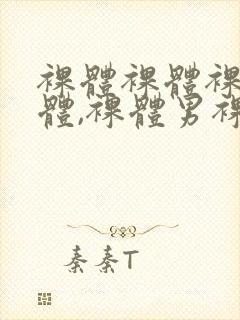 裸體裸體裸
體,裸體男裸
秦秦T